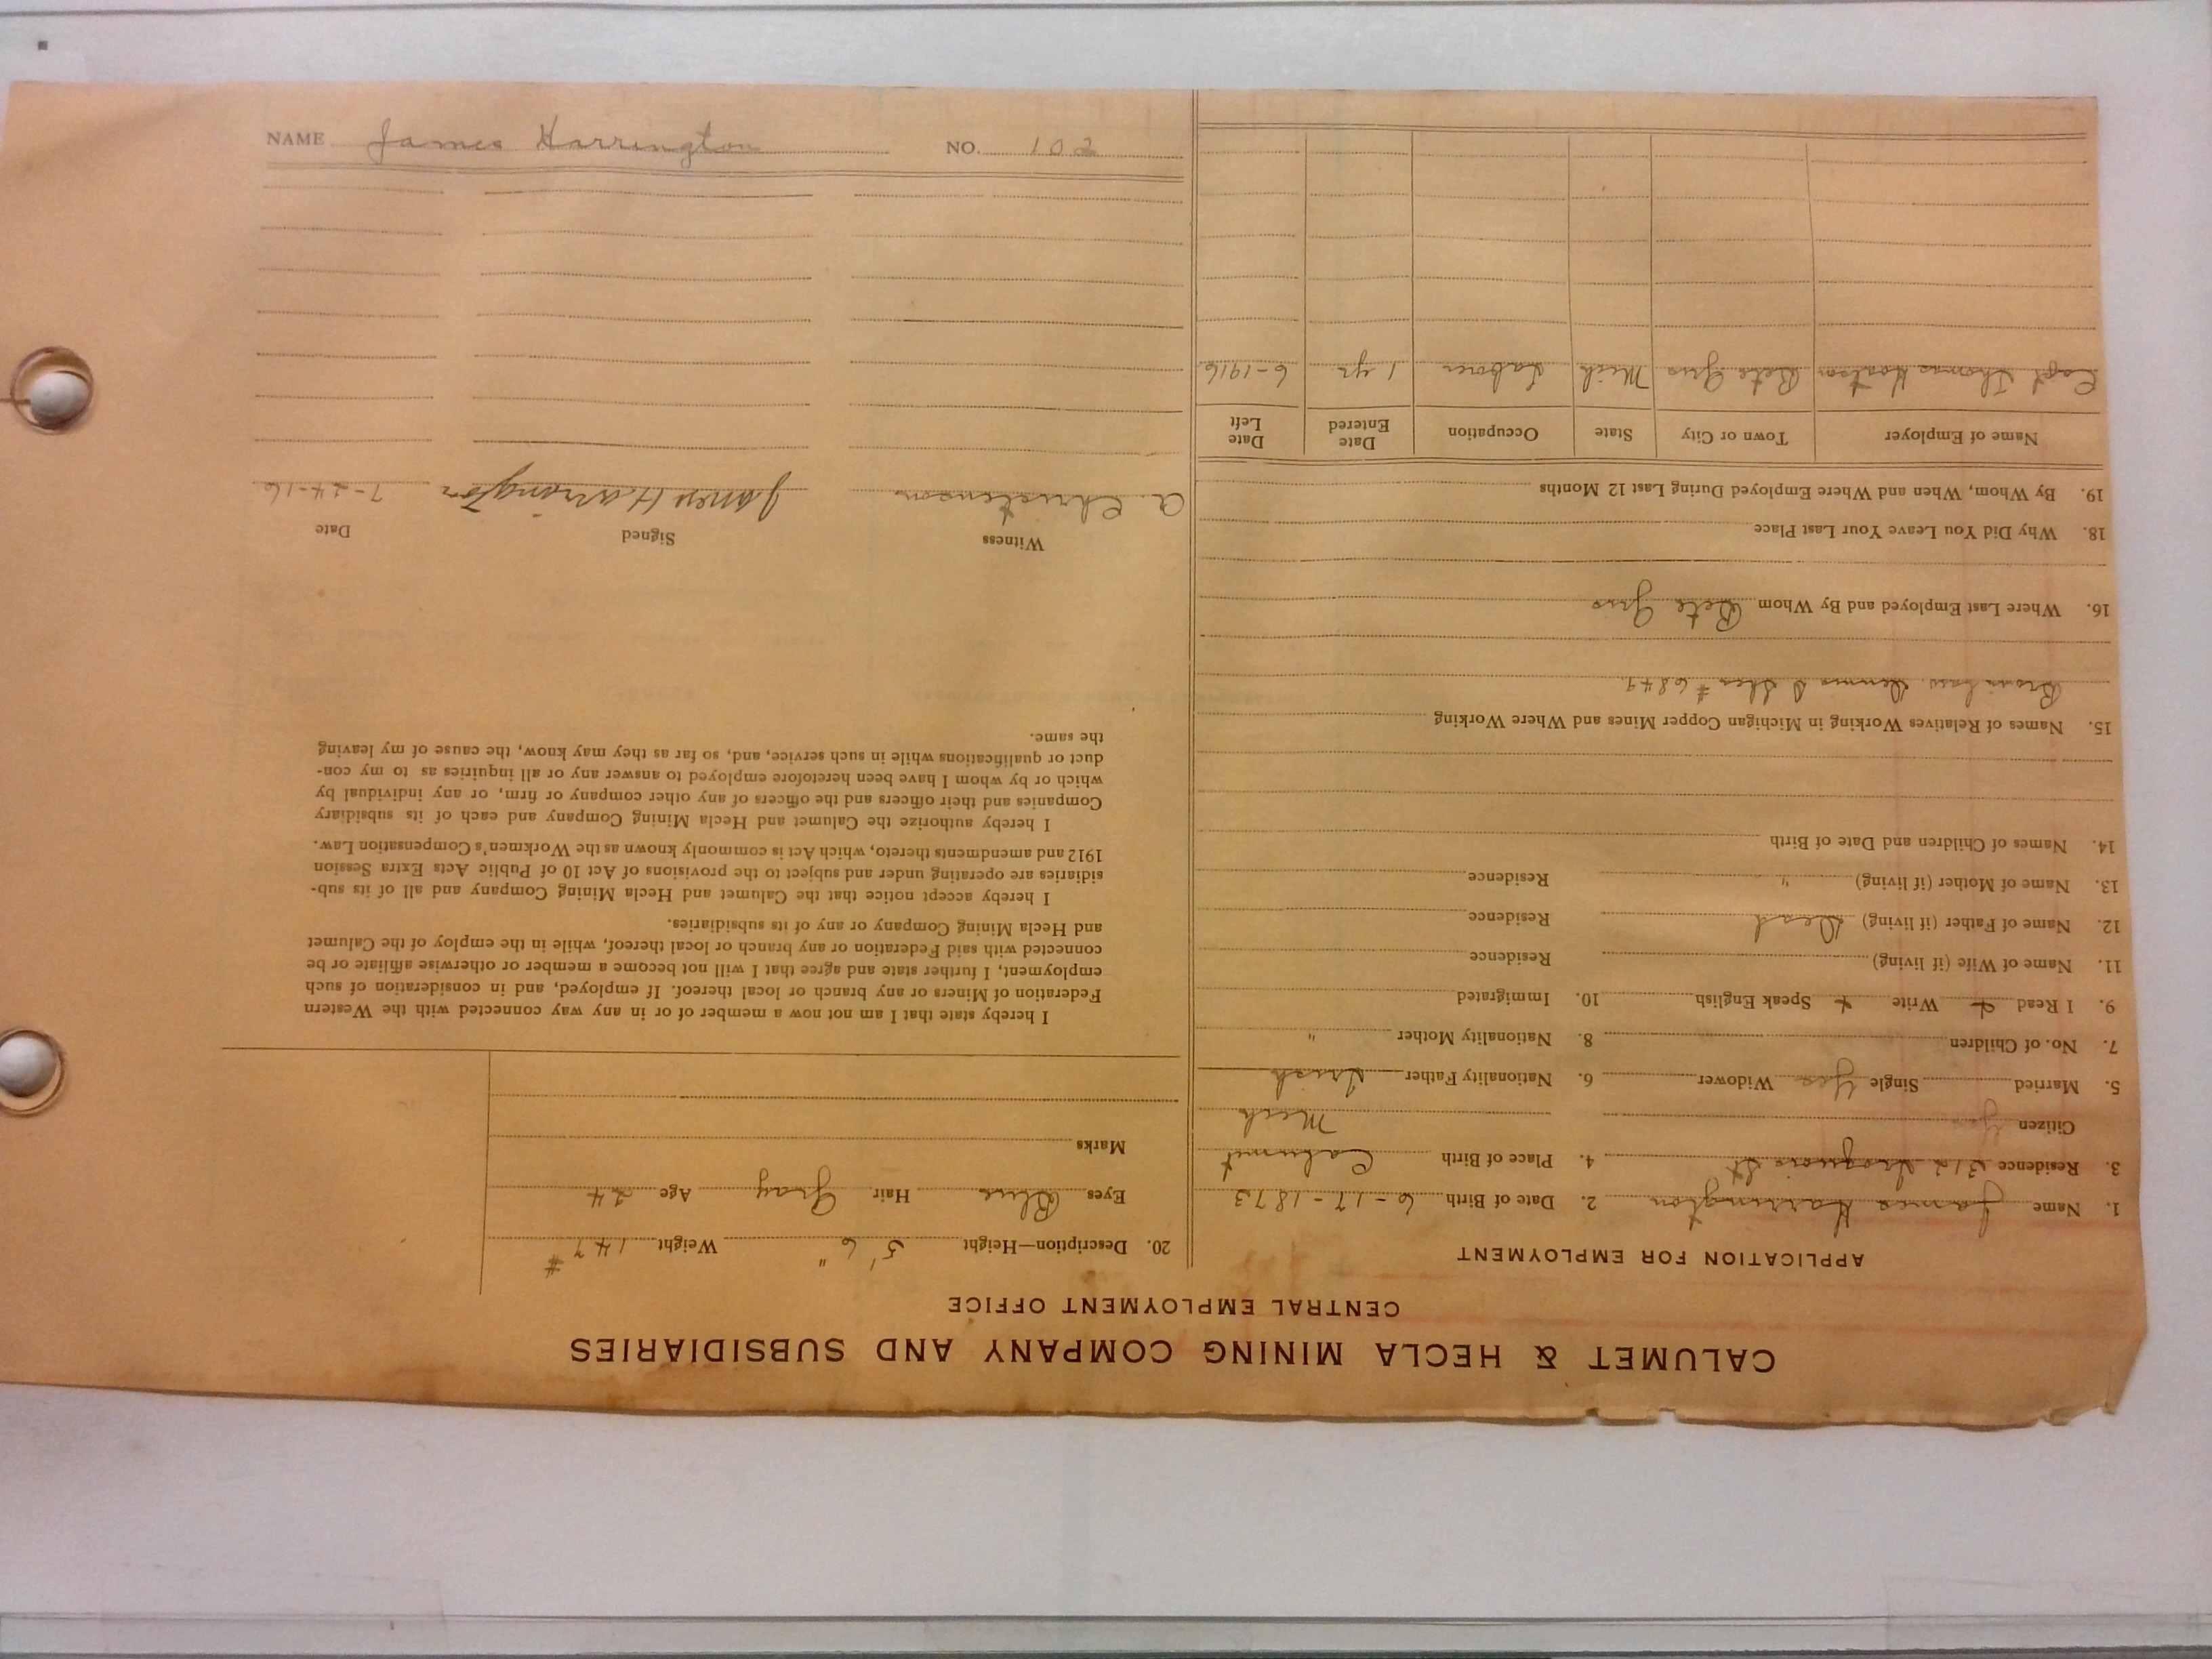 CALUMET & HECLA MINING COMPANY AND SUBSIDIARIES
CENTRAL EMPLOYMENT OFFICE
APPLICATION FOR EMPLOYMENT
1. Name James Harrington 2. Date of Birth 6-17-1873
3. Residence 312 Iroquois St 4. Place of Birth Calumet
Citizen Yes Mich
5. Married Single Yes Widower 6. Nationality Father Irish
7. No. of Children 8. Nationality Mother "
9. I Read Write Speak English 10. Immigrated
11. Name of Wife (if living) Residence
12. Name of Father (if living) Dead Residence
13. Name of Mother (if living) " Residence
14. Names of Children and Date of Birth
15. Names of Relatives Working in Michigan Copper Mines and Where Working
Shea #6849
16. Where Last Employed and By Whom Bete Gris
18. Why Did You Leave Your Last Place
19. By Whom, When and Where Employed During Last 12 Months
Name of Employer Town or City State Occupation Date Entered Date Left
Capt Thomas Hoatson Bete Gris Mich Laborer 1 yr 6-1916
20. Description—Height 5' 6" Weight 147 #
Eyes Blue Hair Gray Age 44
Marks
I hereby state that I am not now a member of or in any way connected with the Western
Federation of Miners or any branch or local thereof. If employed, and in consideration of such
employment, I further state and agree that I will not become a member or otherwise affiliate or be
connected with said Federation or any branch or local thereof, while in the employ of the Calumet
and Hecla Mining Company or any of its subsidiaries.
I hereby accept notice that the Calumet and Hecla Mining Company and all of its sub-
sidiaries are operating under and subject to the provisions of Act 10 of Public Acts Extra Session
1912 and amendments thereto, which Act is commonly known as the Workmen's Compensation Law.
I hereby authorize the Calumet and Hecla Mining Company and each of its subsidiary
Companies and their officers and the officers of any other company or firm, or any individual by
which or by whom I have been heretofore employed to answer any or all inquiries as to my con-
duct or qualifications while in such service, and, so far as they may know, the cause of my leaving
the same.
Witness Signed Date
A. Christenson James Harrington 7-24-16
NAME James Harrington NO. 102